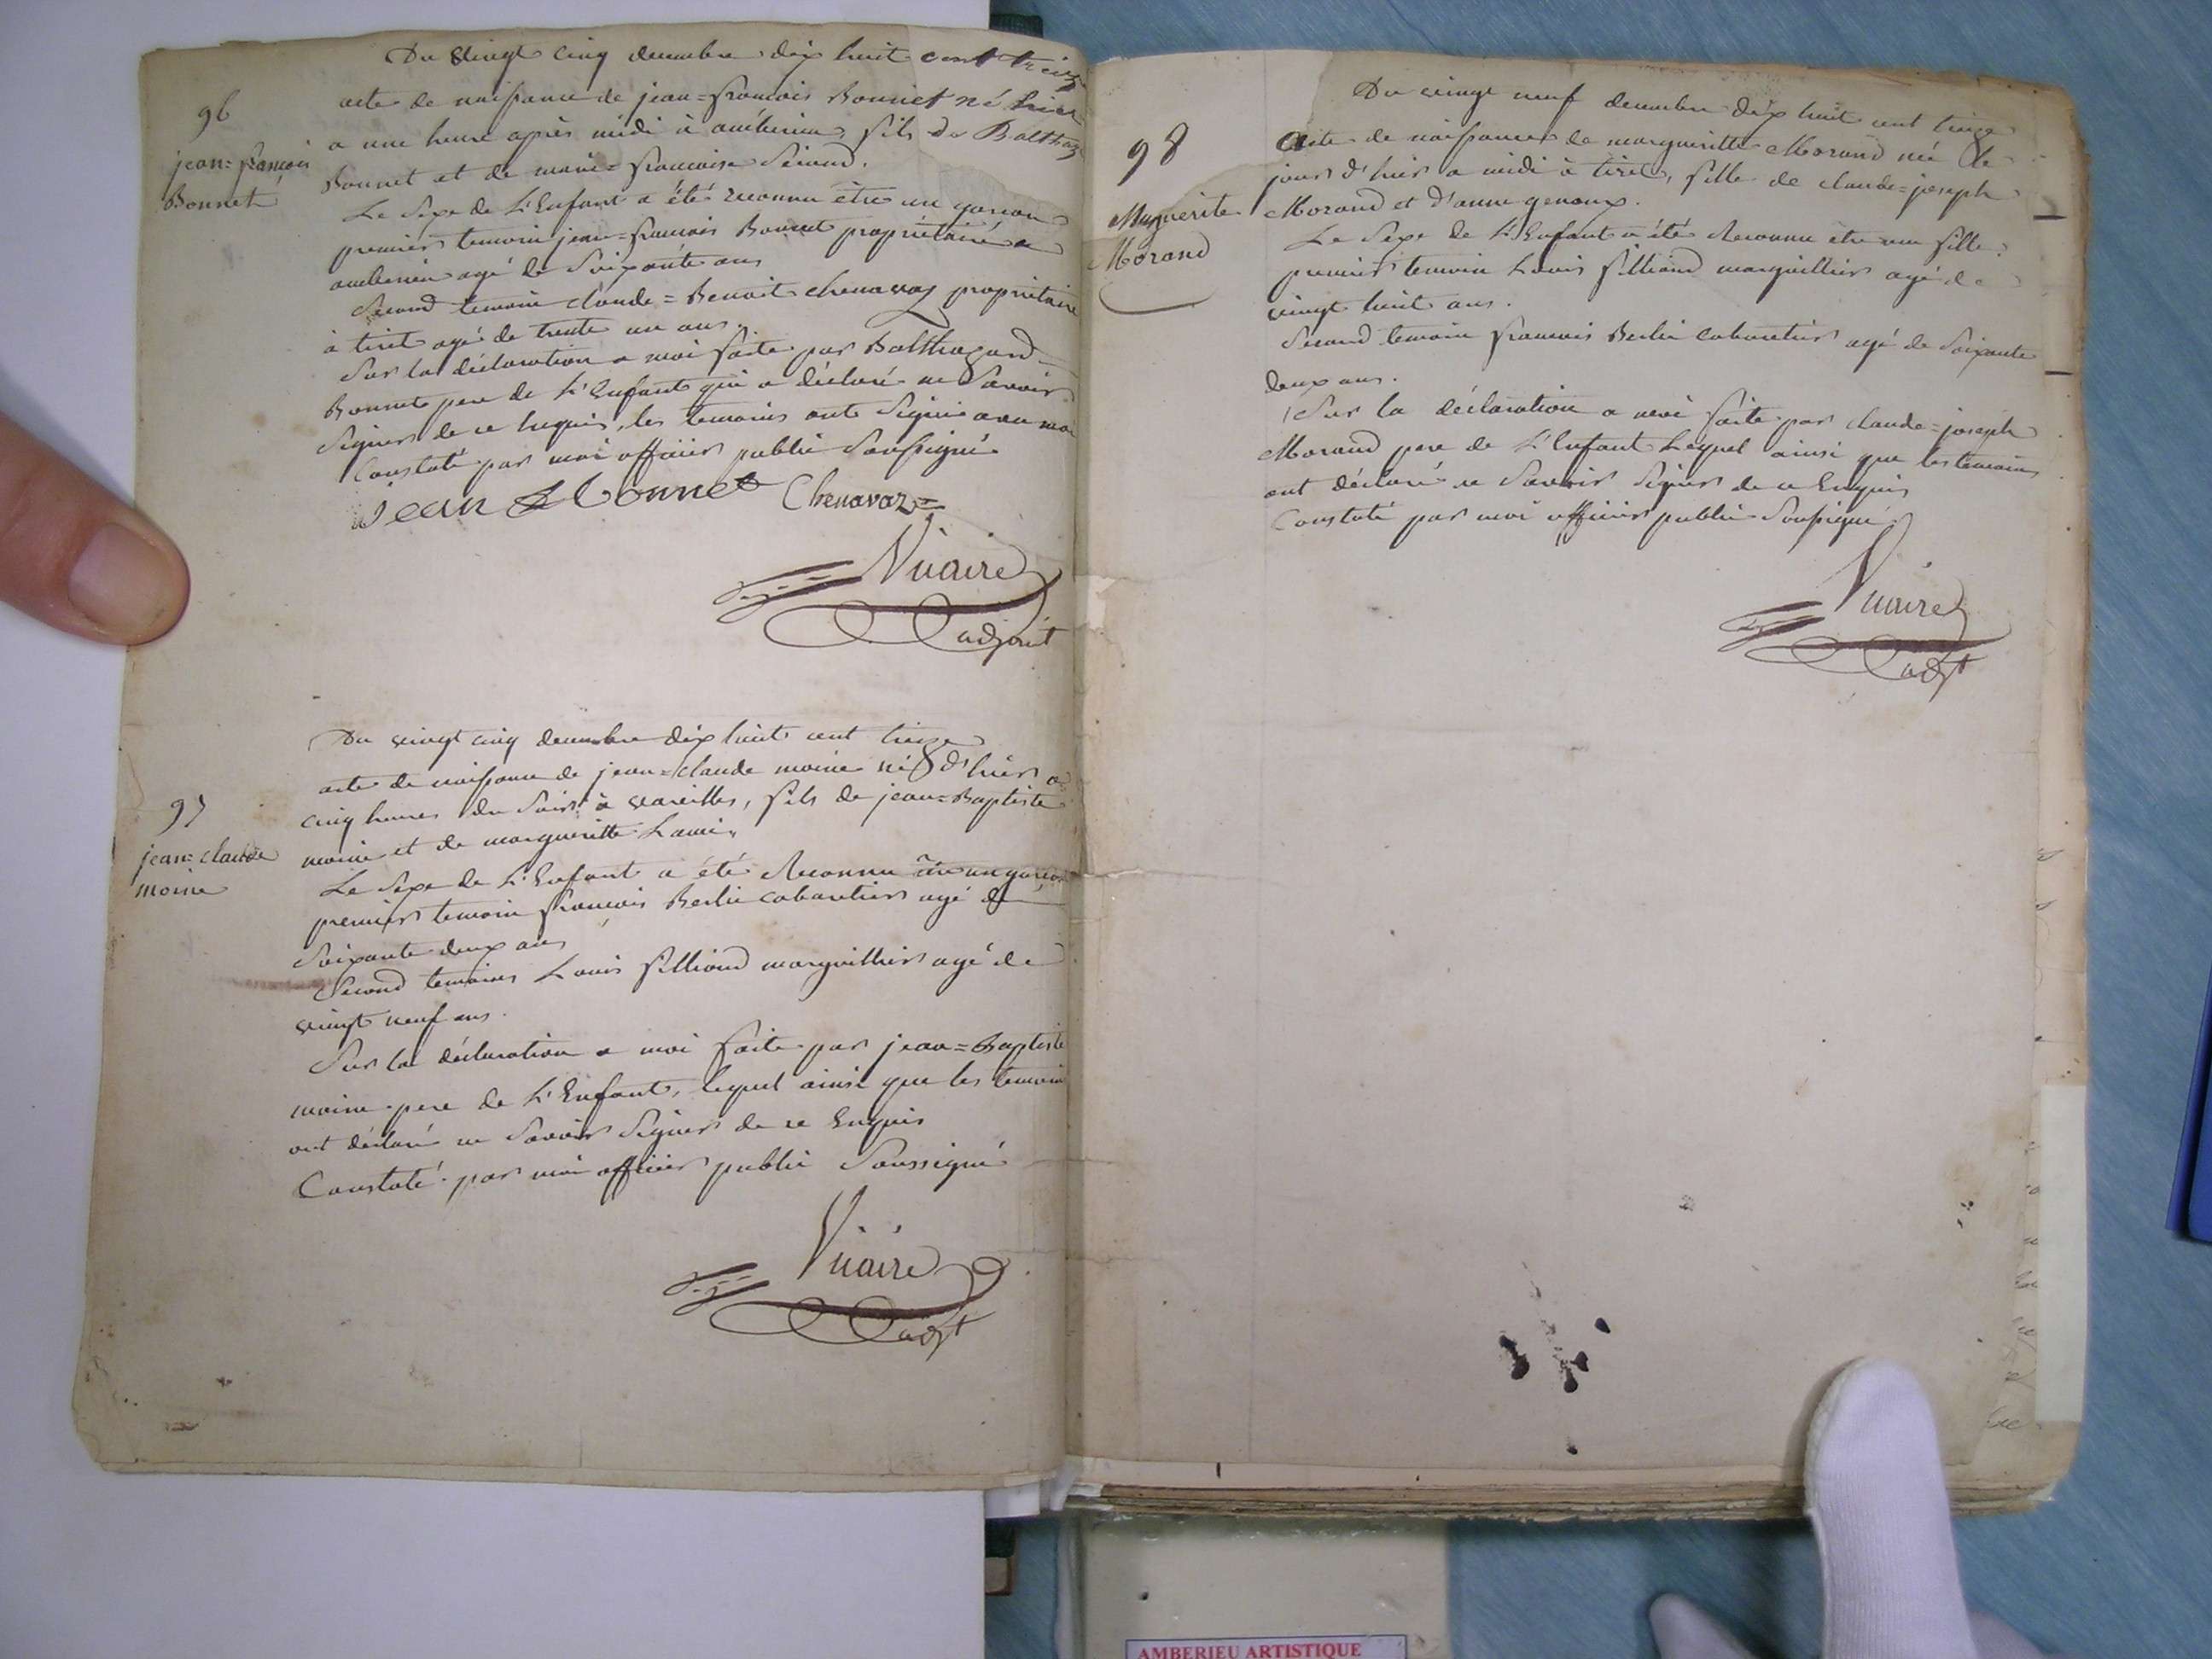 Du vingt cinq decembre dix huit cent treize
96
jean=françois
Bonnet
acte de naissance de jean=francois Bonnet né hier
a une heure après midi à ambérieu, fils de Balthazard
Bonnet et de marie=francoise
Le Sexe de L'Enfant a été reconnu être un garcon
premier temoin jean=francois Bonnet propriétaire a
amberieu agé de Soixante ans
Second temoin claude=Benoit chenavaz propriétaire
à tiret agé de trente un ans.
Sur la déclaration a moi faite par Balthazard
Bonnet pere de L'Enfant qui a déclaré ne Savoir
Signer de ce Enquis, les temoins ont Signé avec moi
Constaté par moi officier public Soussigné
Jean Bonnet Chenavaz
Vuaire
adjoint
Du vingt cinq decembre dix huit cent treize
97
jean=claude
moine
acte de naissance de jean=claude moine né d'hier a
cinq heures du Soir à vareilles, fils de jean=Baptiste
moine et de margueritte Lami.
Le Sexe de L'Enfant a été Reconnu être un garcon
premier temoin francois Berlie cabaretier agé de
Soixante deux ans
Second temoin Louis filliand marguillier agé de
vingt neuf ans.
Sur la déclaration a moi faite par jean=Baptiste
moine pere de L'Enfant, lequel ainsi que les temoins
ont déclaré ne Savoir Signer de ce Enquis
Constaté par moi officier public Soussigné
Vuaire
adjt
Du vingt neuf decembre dix huit cent treize
98
Marguerite
Morand
Acte de naissance de margueritte Morand née le
jour d'hier a midi à tiret, fille de claude=joseph
Morand et d'anne genoux.
Le Sexe de L'Enfant a été Reconnu être une fille.
premier temoin Louis filliand marguillier agé de
vingt huit ans.
Second temoin francois Berlie cabaretier agé de Soixante
deux ans.
Sur la déclaration a moi faite par claude=joseph
Morand pere de L'Enfant Lequel ainsi que les temoins
ont déclaré ne Savoir Signer de ce Enquis
Constaté par moi officier public Soussigné
Vuaire
adjt
AMBERIEU ARTISTIQUE